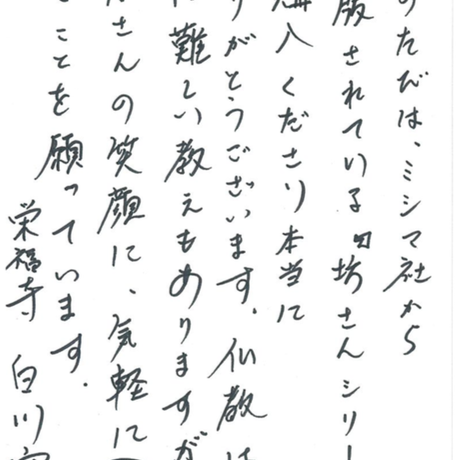 のたびは、ミシマ社から
版されている坊さんシリー
購入くださり本当に
りがとうございます。仏教は
難しい教えもありますが
さんの笑顔に、気軽に
ことを願っています。
栄福寺 白川